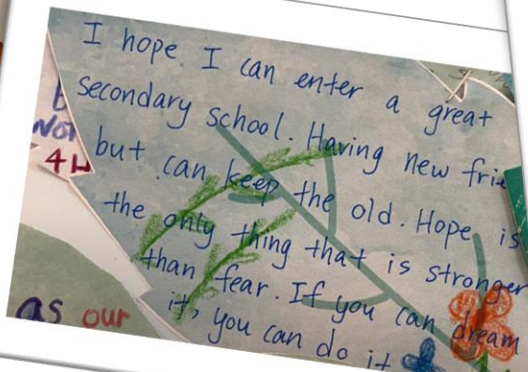 I hope I can enter a great
secondary school. Having new
but can keep the old. Hope is
the only thing that is stronger
than fear. If you can dream
it, you can do it
4H
as our